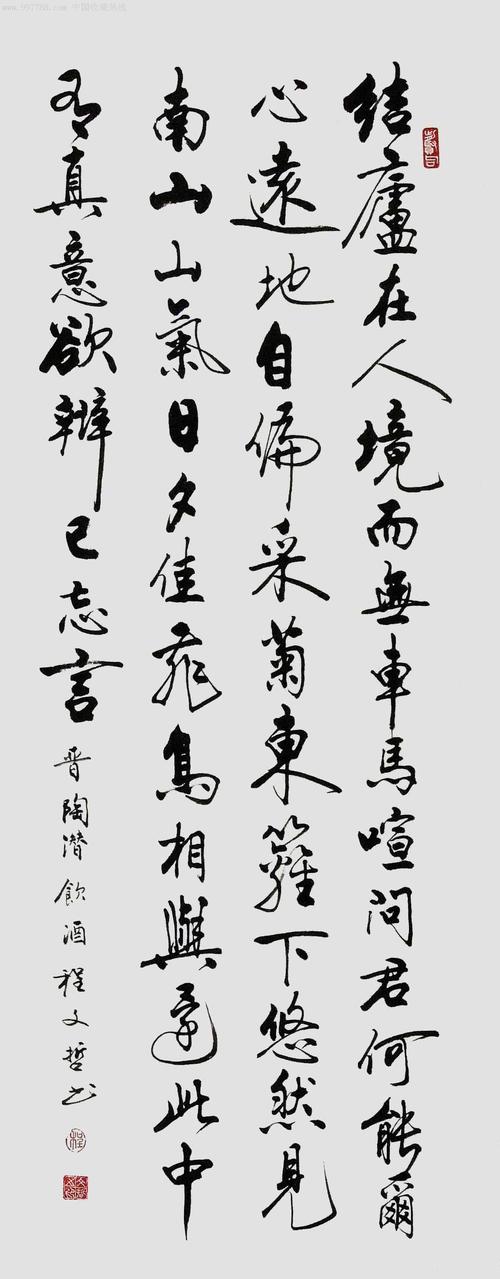 www.997788.com 中国收藏热线
結廬在人境而無車馬喧問君何能爾
心遠地自偏采菊東籬下悠然見
南山山氣日夕佳飛鳥相與還此中
有真意欲辨已忘言
晋陶潜飲酒程文哲书
程